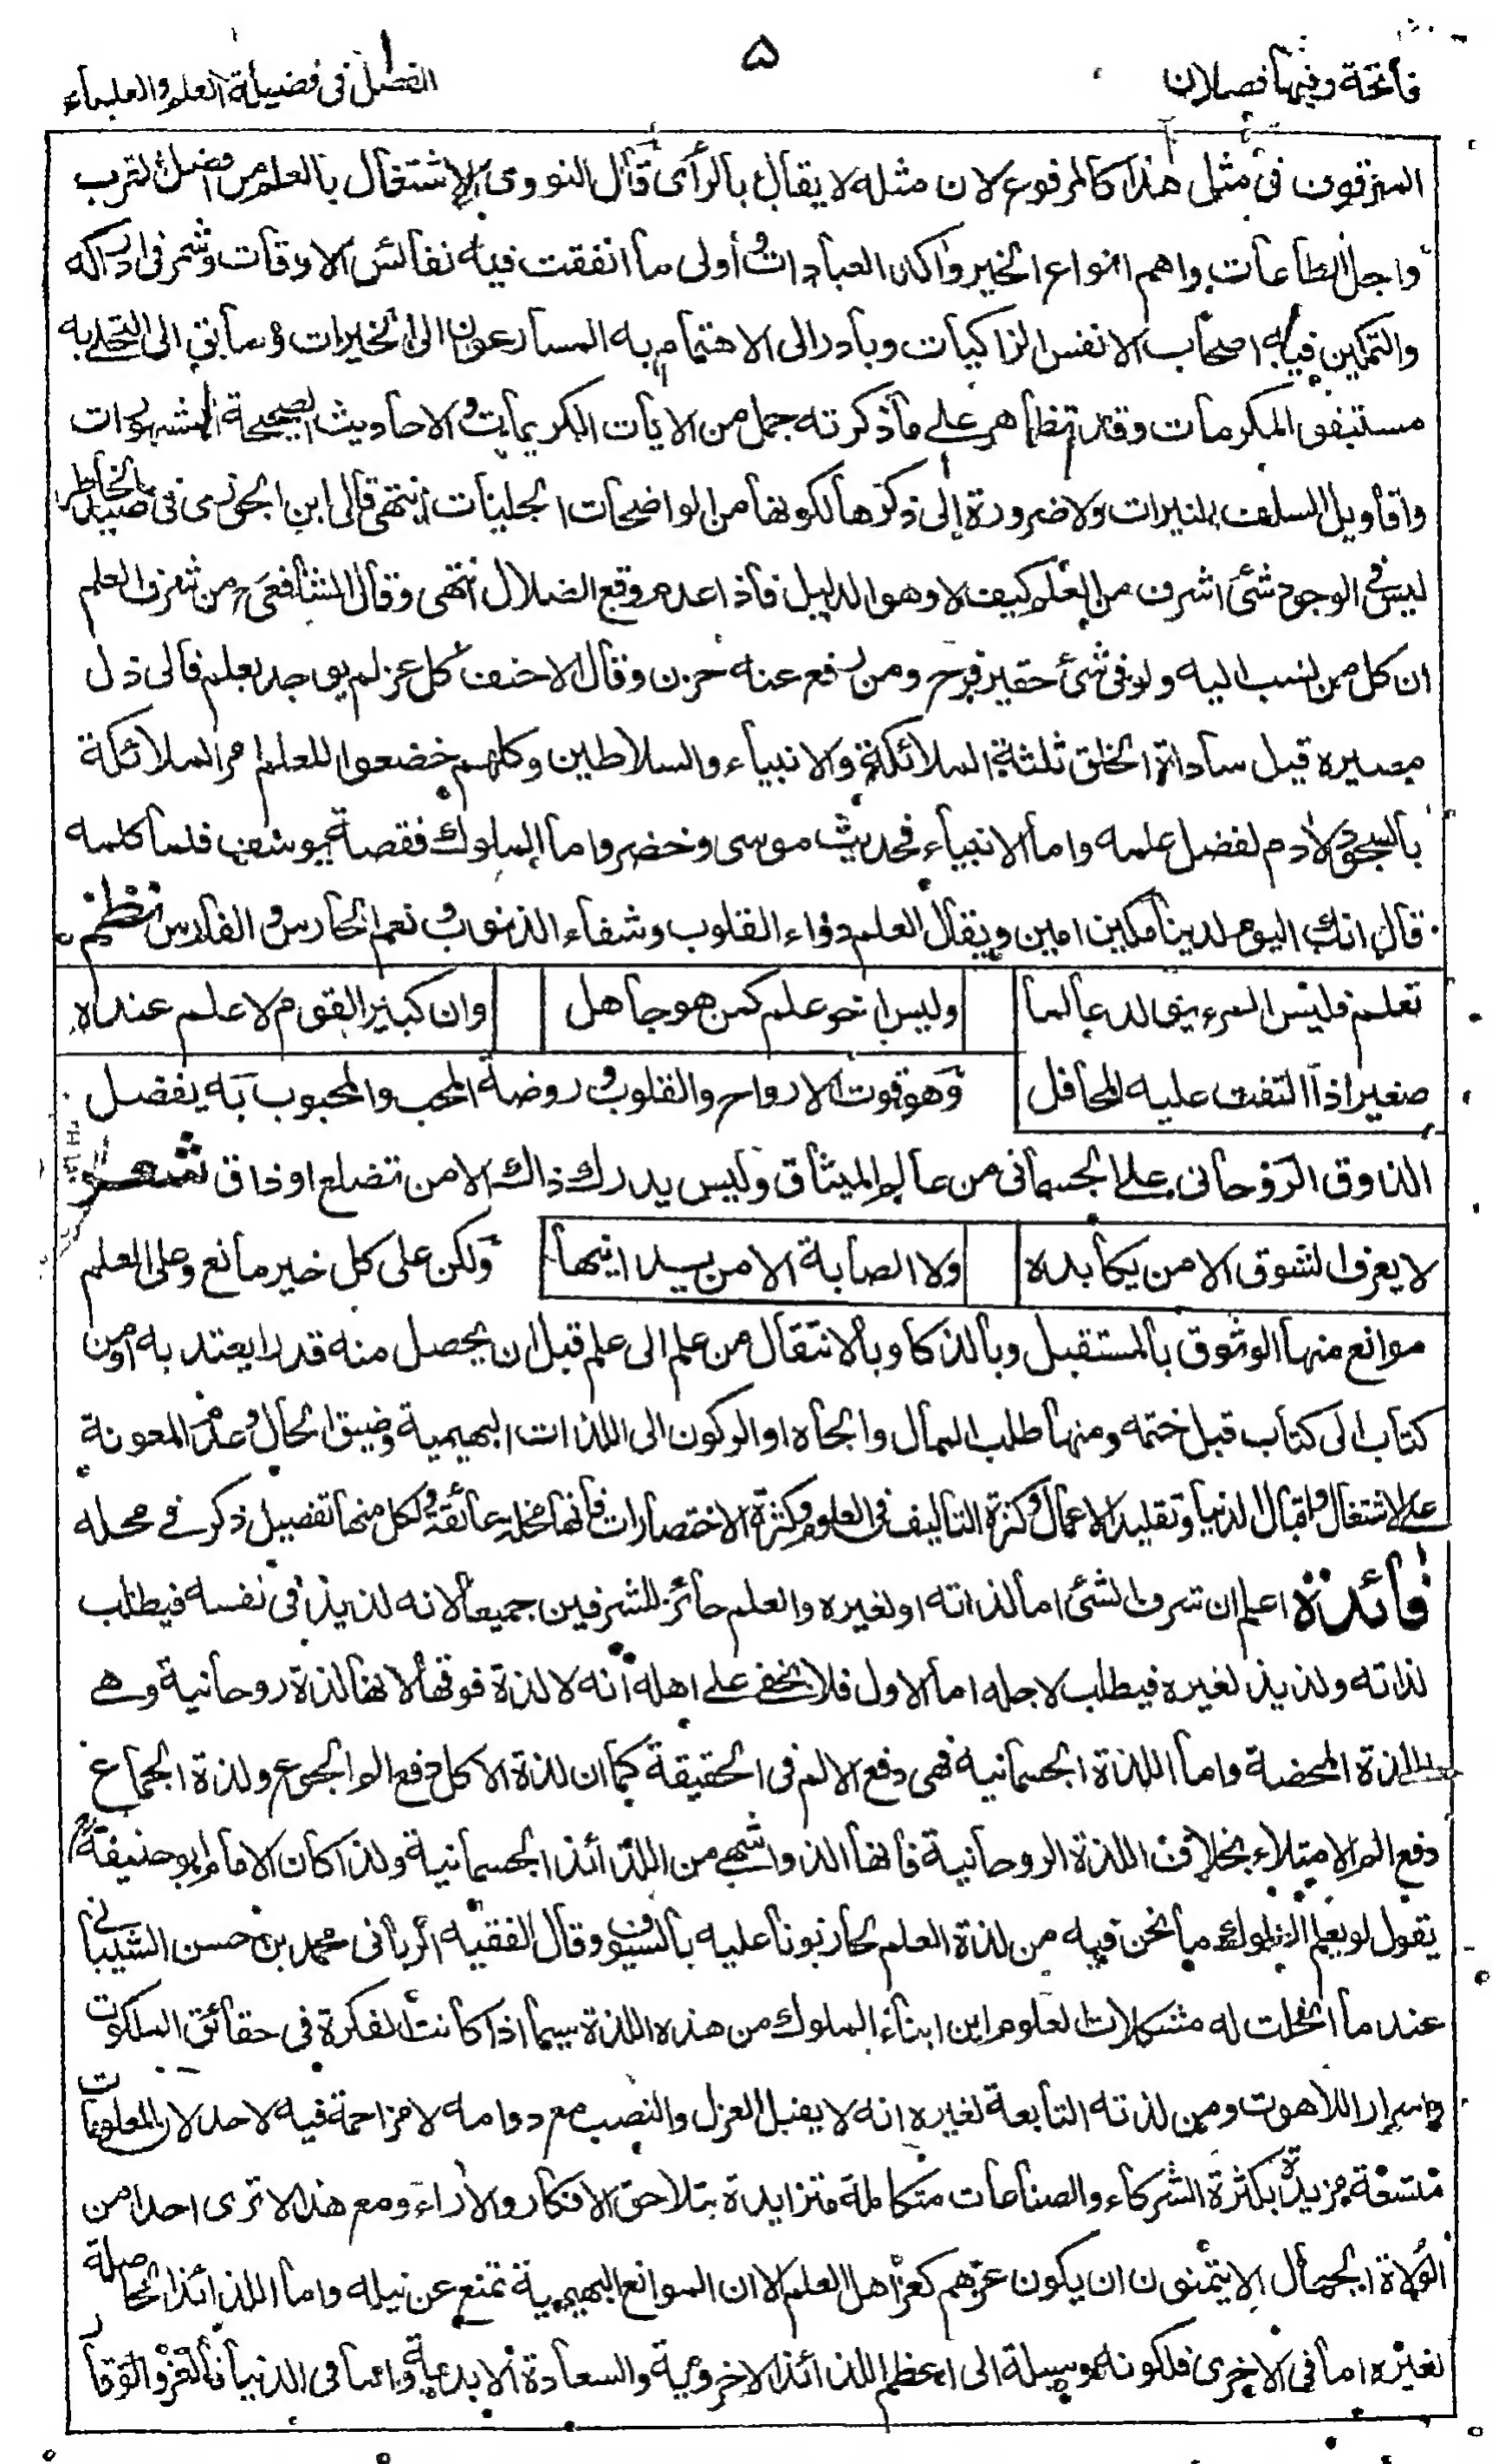 فاتحة وفيها فصلان
۵
الفصل في فضيلة العلم والعلماء
في مثل هذا كالمرفوع لان مثله لا يقال بالرأى قال النووى الاشتغال بالعلم من افضل القرب
واجل الطاعات واهم انواع الخير واكد العبادات وأولى ما انفقت فيه نفائس الاوقات وشمر فى ادراكه
والتمكين فيه اصحاب الانفس الزاكيات وبادر الى الاهتمام به المسارعون الى الخيرات وسابق الى التحلے به
مستبقو المكرمات وقد تظاهر علے ما ذكرته جمل من الايات الكريمات والاحاديث الصحيحة المشهورات
واقاويل السلف النيرات ولا ضرورة إلى ذكرها لكونها من الواضحات الجليات انتهى قال ابن الجوزى فى صيد الخاطر
ليس في الوجود شئ اشرف من العلم كيف لا وهو الدليل فاذا عدم وقع الضلال انتهى وقال الشافعى من شرف العلم
ان كل من نسب اليه ولو فى شئ حقير فرح ومن رفع عنه حزن وقال الاحنف كل عز لم يوجد بعلم فالى ذل
مصيره قيل سادة الخلق ثلثة الملائكة والانبياء والسلاطين وكلهم خضعوا للعلم امر الملائكة
بالسجود لادم لفضل علمه واما الانبياء فحديث موسى وخضر واما الملوك فقصة يوسف فلما كلمه
قال انك اليوم لدينا مكين امين ويقال العلم دواء القلوب وشفاء الذنوب ونعم الحارس والفارس نظم
تعلم فليس المرء يولد عالما
وليس اخو علم كمن هو جاهل
وان كبير القوم لا علم عنده
صغير اذا التفت عليه المحافل
وهو قوت الارواح والقلوب وروضة المحب والمحبوب به يفضل
الذوق الروحانى علے الجسمانى من عالم الميثاق وليس يدرك ذاك الا من تضلع او ذاق شعر
لا يعرف الشوق الا من يكابده
ولا الصبابة الا من يعانيها
ولكن على كل خير مانع وعلى العلم
موانع منها الوثوق بالمستقبل وبالذكا وبالانتقال من علم الى علم قبل ان يحصل منه قدرا يعتد به او من
كتاب الى كتاب قبل ختمه ومنها طلب المال والجاه او الركون الى اللذات البهيمية وضيق الحال وعدم المعونة
علے الاشتغال واقبال الدنيا وتقليد الاعمال وكثرة التأليف فى العلوم وكثرة الاختصارات فانها مخلة عائقة ولكل منها تفصيل ذكر فے محله
فائدة اعلم ان شرف الشئ اما لذاته او لغيره والعلم حائز للشرفين جميعا لانه لذيذ فى نفسه فيطلب
لذاته ولذيذ لغيره فيطلب لاجله اما الاول فلا يخفى على اهله انه لا لذة فوقها لانها لذة روحانية وهے
اللذة المحضة واما اللذة الجسمانية فهى دفع الالم فى الحقيقة كما ان لذة الاكل دفع الم الجوع ولذة الجماع
دفع الم الامتلاء بخلاف اللذة الروحانية فانها الذ واشهى من اللذائذ الجسمانية ولذا كان الامام ابو حنيفة رح
يقول لو يعلم الملوك ما نحن فيه من لذة العلم لحاربونا عليه بالسيوف وقال الفقيه الربانى محمد بن حسن الشيبانى
عندما انحلت له مشكلات العلوم اين ابناء الملوك من هذه اللذة سيما اذا كانت الفكرة فى حقائق الملكوت
واسرار اللاهوت ومن لذته التابعة لغيره انه لا يقبل العزل والنصب مع دوامه لا مزاحمة فيه لاحد لان المعلومات
متسعة مزيدة بكثرة الشركاء والصناعات متكاملة متزايدة بتلاحق الافكار والاراء ومع هذا لا ترى احدا من
الولاة الجهال الا يتمنون ان يكون عزهم كعز اهل العلم الا ان الموانع البهيمية تمنع عن نيله واما اللذائذ الحاصلة
لغيره اما فى الاخرى فلكونه وسيلة الى اعظم اللذائذ الاخروية والسعادة الابدية واما فى الدنيا فالعز والوقار